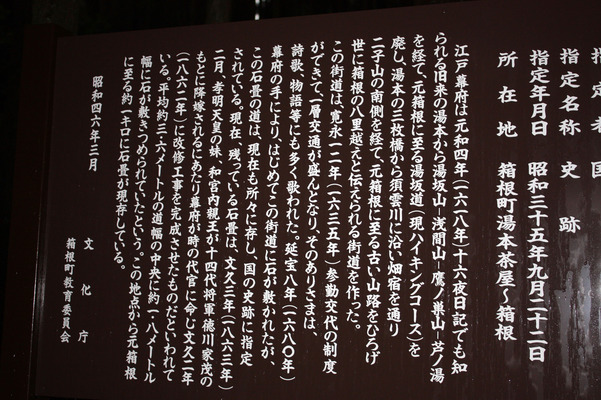 指定者 国
指定名称 史跡
指定年月日 昭和三十五年九月二十二日
所在地 箱根町湯本茶屋～箱根
江戸幕府は元和四年(一六一八年)十六夜日記でも知
られる旧来の湯本から湯坂山―浅間山―鷹ノ巣山―芦ノ湯
を経て、元箱根に至る湯坂道(現ハイキングコース)を
廃し、湯本の三枚橋から須雲川に沿い畑宿を通り
二子山の南側を経て、元箱根に至る古い山路をひろげ
世に箱根の八里越えと伝えられる街道を作った。
この街道は、寛永一二年(一六三五年)参勤交代の制度
ができて一層交通が盛んとなり、そのありさまは、
詩歌、物語等にも多く歌われた。延宝八年(一六八〇年)
幕府の手により、はじめてこの街道に石が敷かれたが、
この石畳の道は、現在も所々に存し、国の史跡に指定
されている。現在、残っている石畳は、文久三年(一八六三年)
二月、孝明天皇の妹、和宮内親王が十四代将軍徳川家茂の
もとに降嫁されるにあたり幕府が時の代官に命じ文久二年
(一八六二年)に改修工事を完成させたものだといわれて
いる。平均約三・六メートルの道幅の中央に約一・八メートル
幅に石が敷きつめられていたという。この地点から元箱根
に至る約一キロに石畳が現存している。
昭和四六年三月
文化庁
箱根町教育委員会